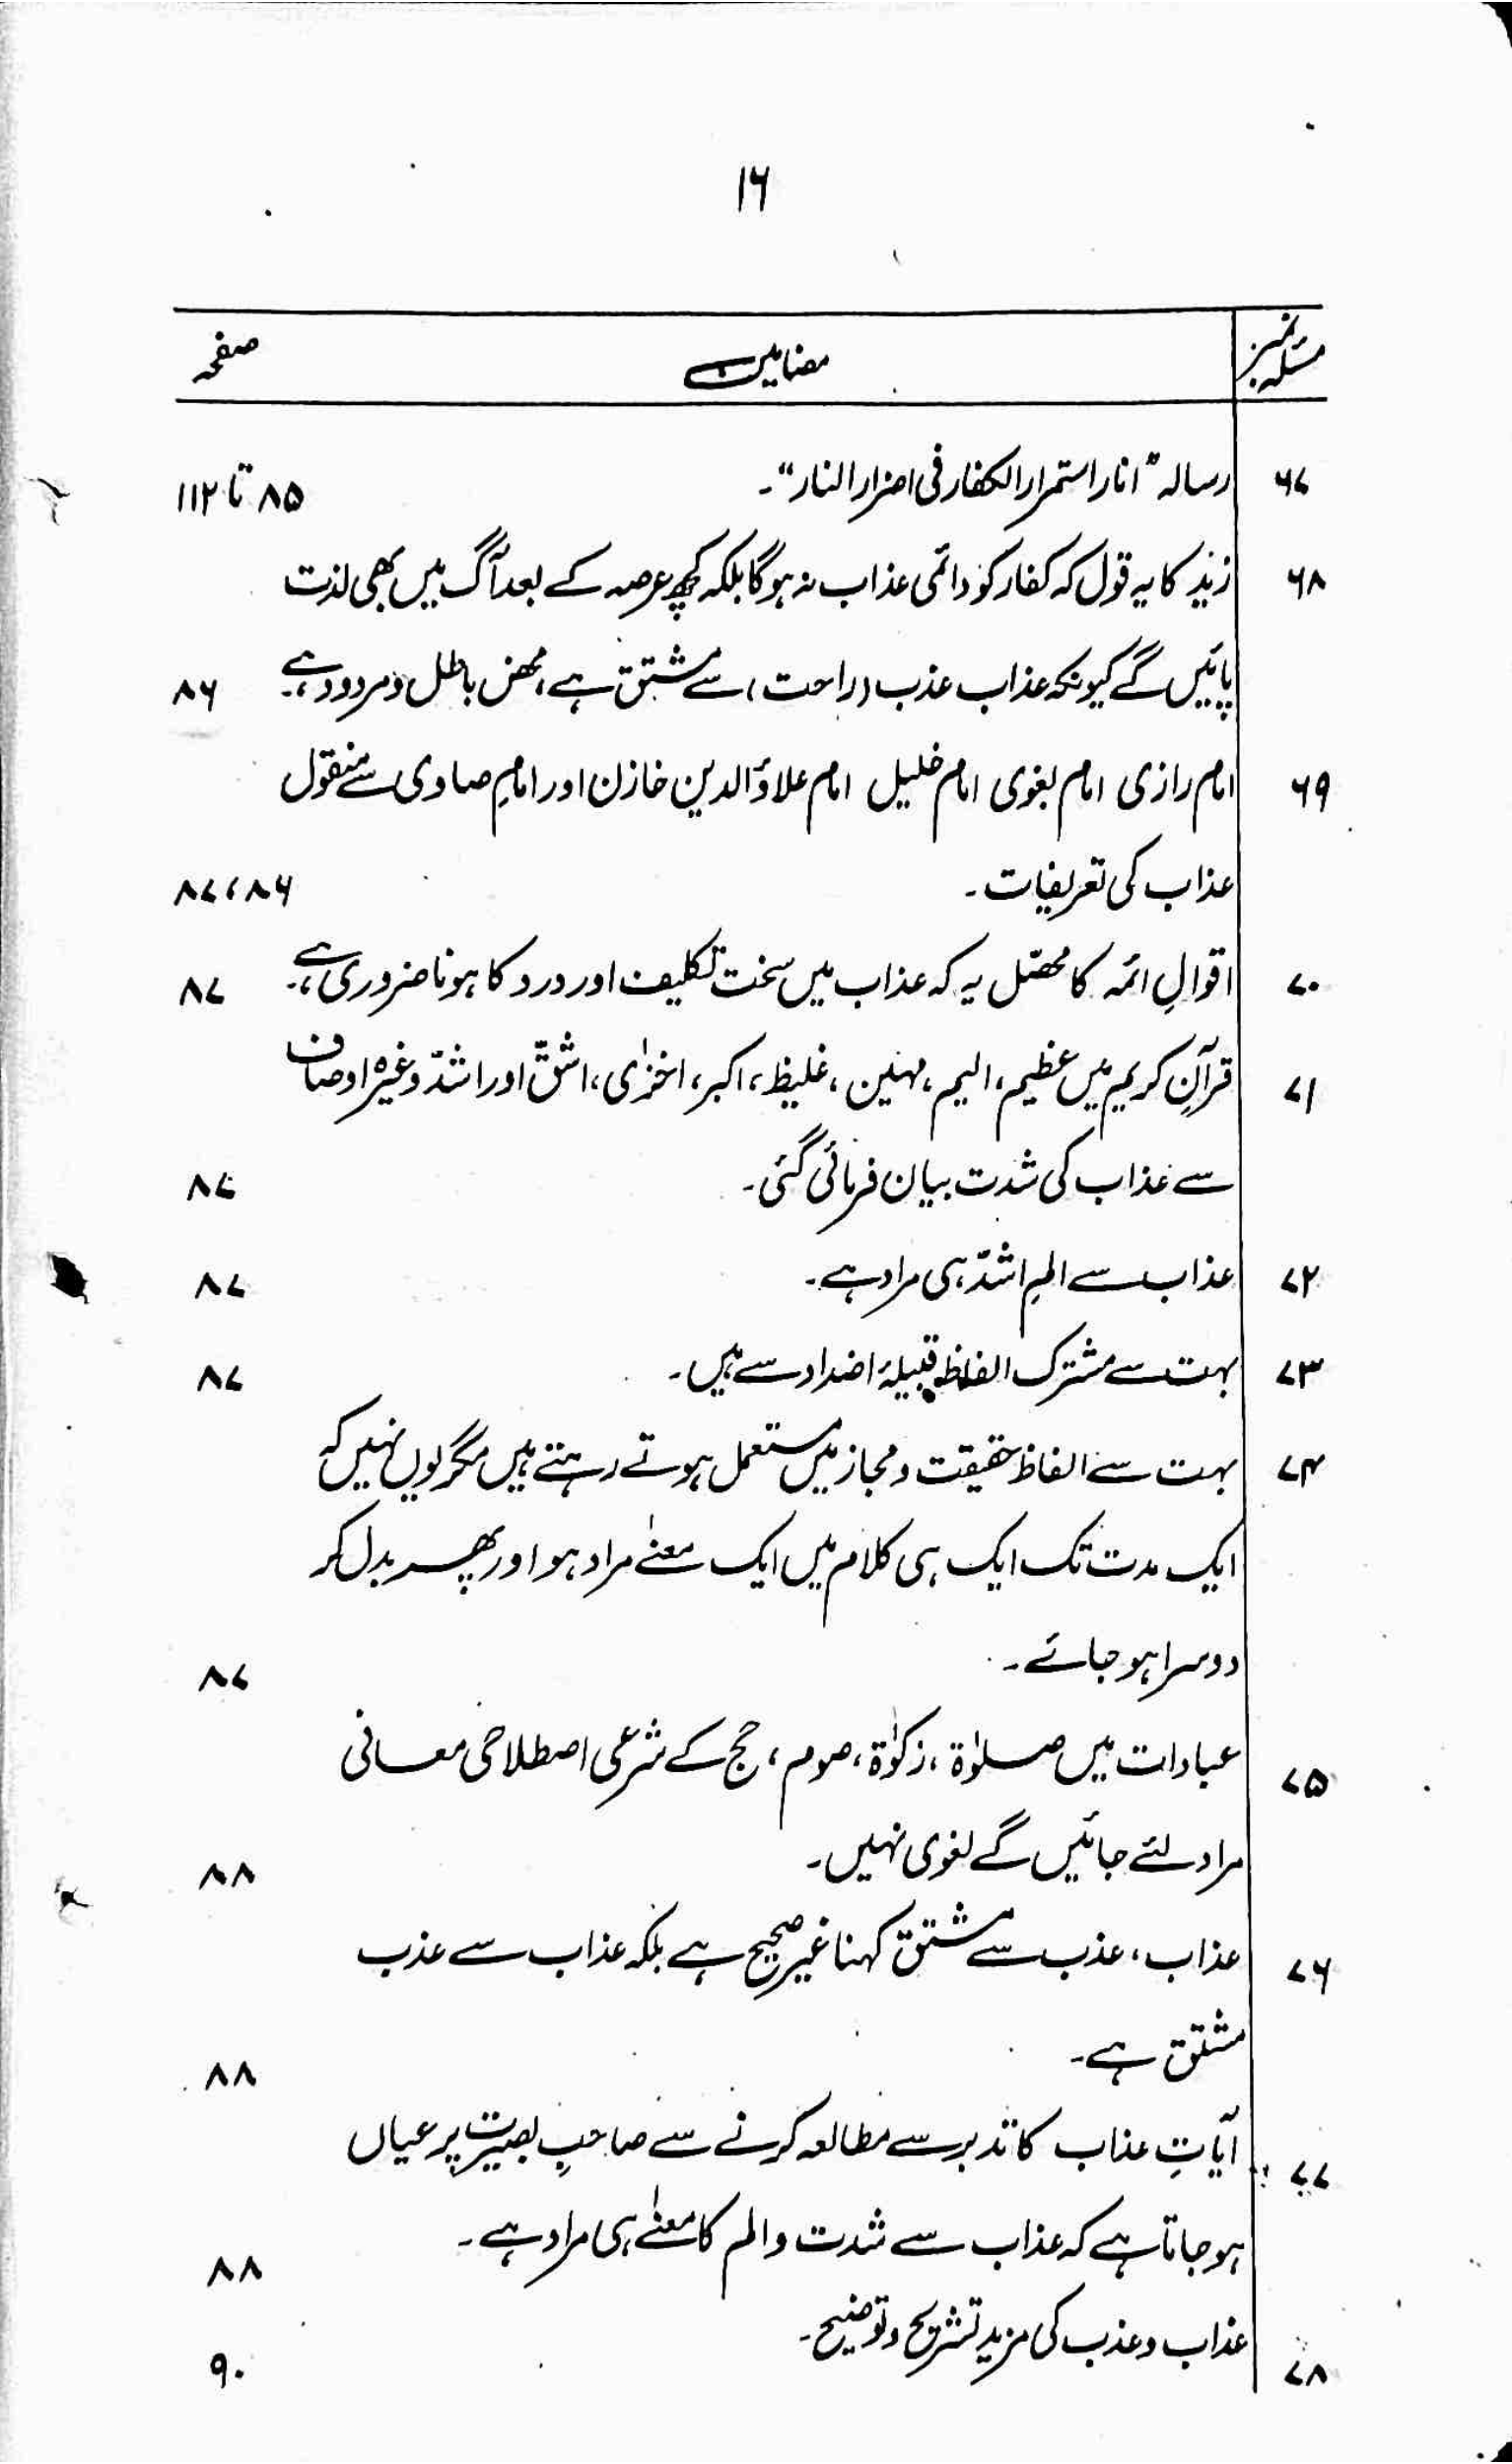 ۱۶
مسئلہ نمبر مضامین صفحہ
۶۷ رسالہ "انار استمرار الکفار فی اضرار النار"۔ ۸۵ تا ۱۱۲
۶۸ زید کا یہ قول کہ کفار کو دائمی عذاب نہ ہوگا بلکہ کچھ عرصہ کے بعد آگ میں بھی لذت
پائیں گے کیونکہ عذاب عذب (راحت) سے مشتق ہے، محض باطل و مردود ہے۔ ۸۶
۶۹ امام رازی امام بغوی امام خلیل امام علاؤ الدین خازن اور امام صاوی سے منقول
عذاب کی تعریفات۔ ۸۶، ۸۷
۷۰ اقوالِ ائمہ کا محصّل یہ کہ عذاب میں سخت تکلیف اور درد کا ہونا ضروری ہے۔ ۸۷
۷۱ قرآنِ کریم میں عظیم، الیم، مہین، غلیظ، اکبر، اخزٰی، اشقّ اور اشدّ وغیرہ اوصاف
سے عذاب کی شدت بیان فرمائی گئی۔ ۸۷
۷۲ عذاب سے المِ اشدّ ہی مراد ہے۔ ۸۷
۷۳ بہت سے مشترک الفاظ قبیلۂ اضداد سے ہیں۔ ۸۷
۷۴ بہت سے الفاظ حقیقت و مجاز میں مستعمل ہوتے رہتے ہیں مگر یوں نہیں کہ
ایک مدت تک ایک ہی کلام میں ایک معنےٰ مراد ہو اور پھر بدل کر
دوسرا ہو جائے۔ ۸۷
۷۵ عبادات میں صلوٰۃ، زکوٰۃ، صوم، حج کے شرعی اصطلاحی معانی
مراد لئے جائیں گے لغوی نہیں۔ ۸۸
۷۶ عذاب، عذب سے مشتق کہنا غیر صحیح ہے بلکہ عذاب سے عذب
مشتق ہے۔ ۸۸
۷۷ آیاتِ عذاب کا تدبر سے مطالعہ کرنے سے صاحبِ بصیرت پر عیاں
ہو جاتا ہے کہ عذاب سے شدت و الم کا معنےٰ ہی مراد ہے۔ ۸۸
۷۸ عذاب و عذب کی مزید تشریح و توضیح۔ ۹۰